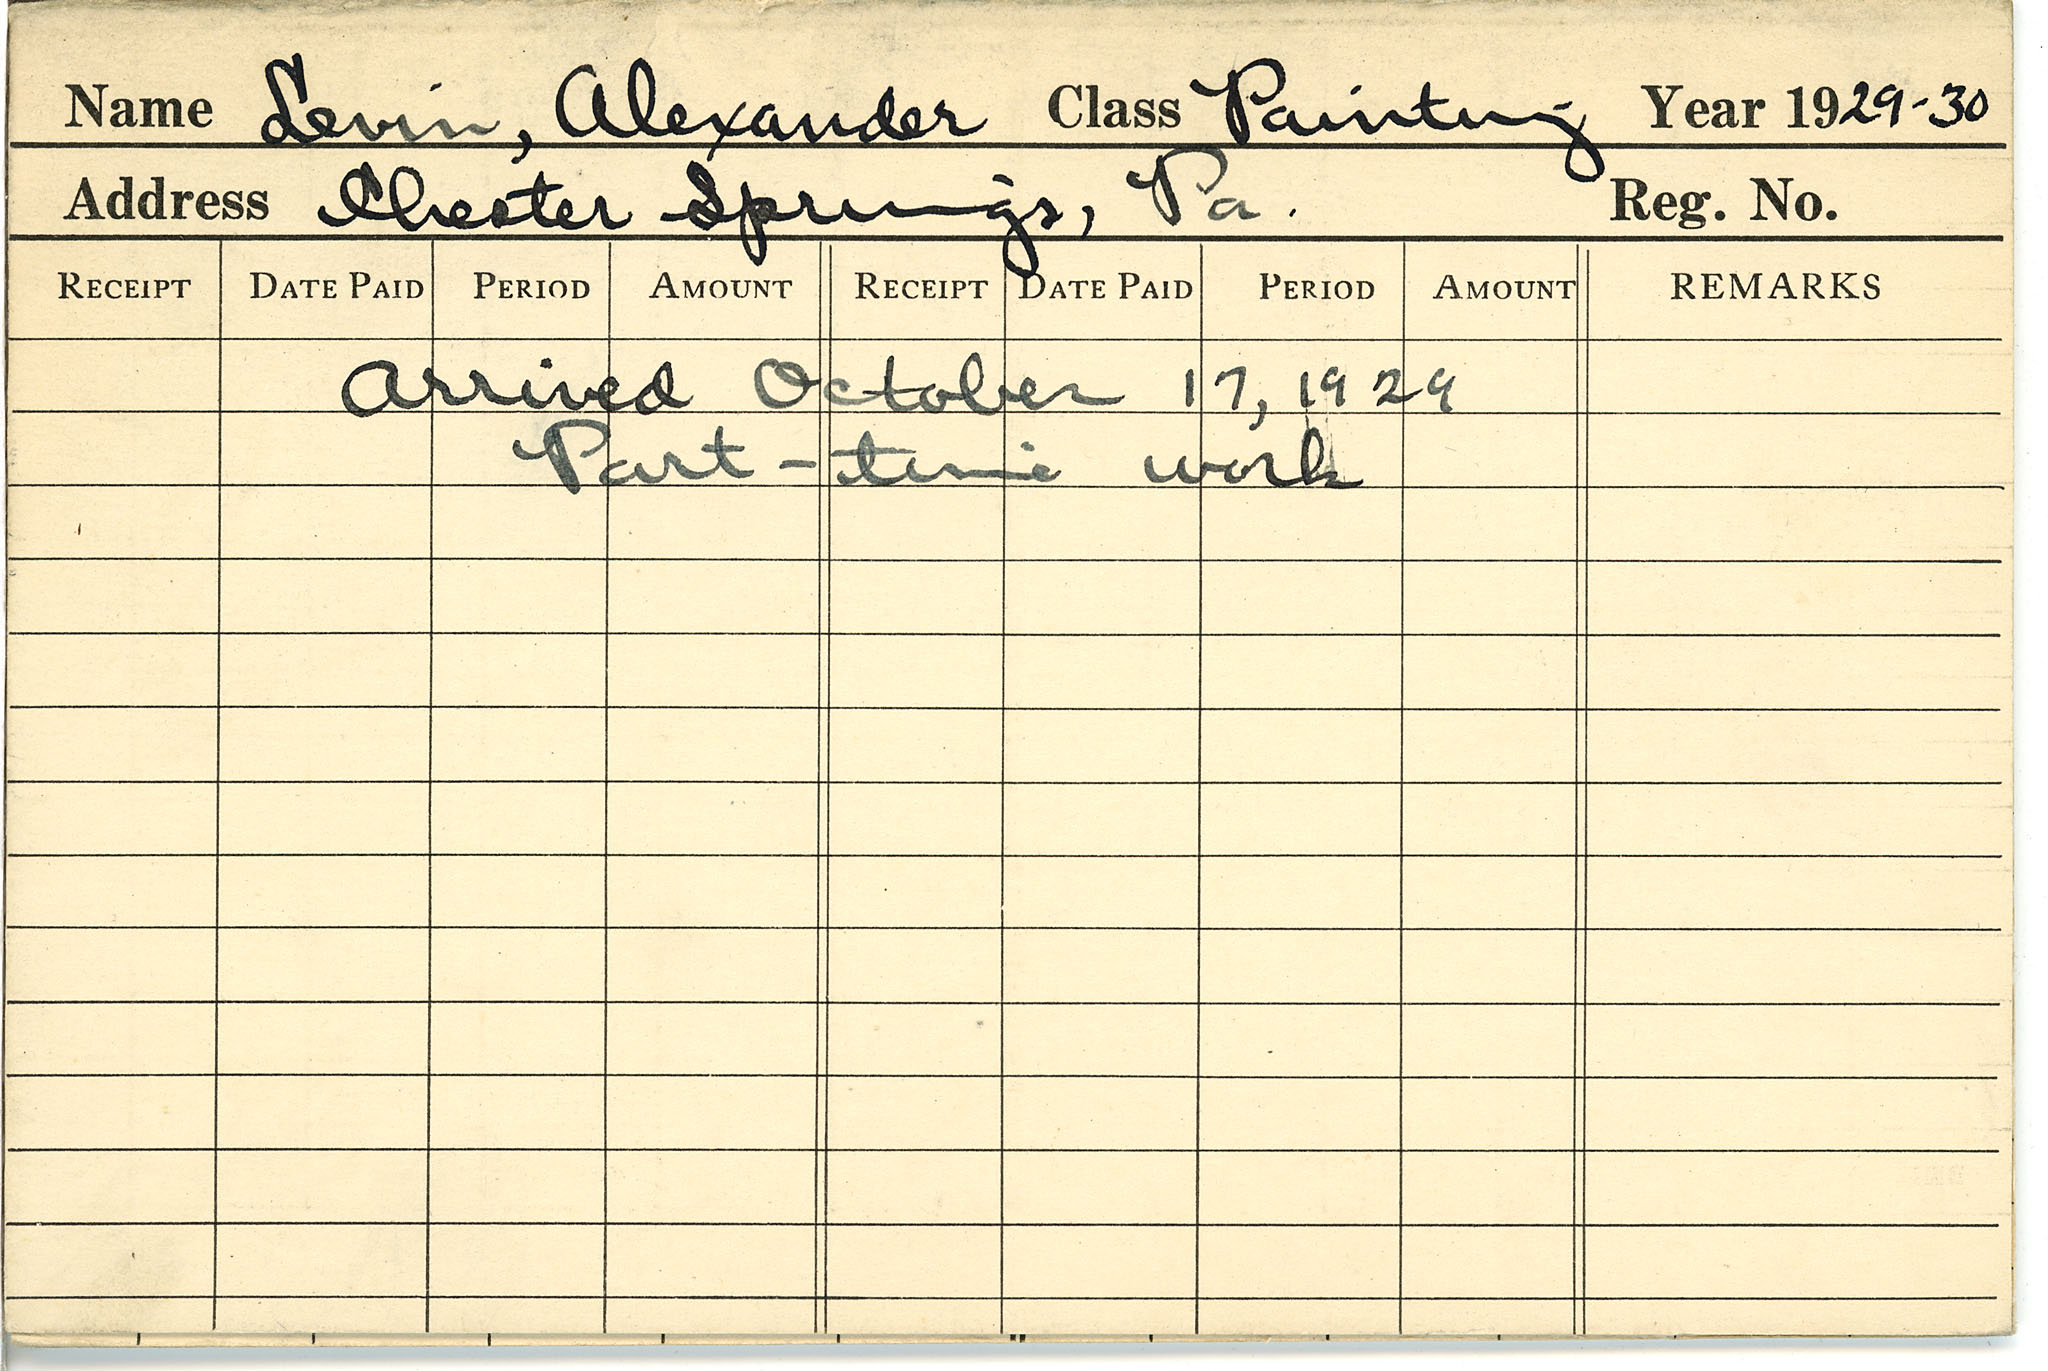 Name Levin, Alexander Class Painting Year 1929-30
Address Chester Springs, Pa. Reg. No.
RECEIPT DATE PAID PERIOD AMOUNT RECEIPT DATE PAID PERIOD AMOUNT REMARKS
Arrived October 17, 1929
Part-time work